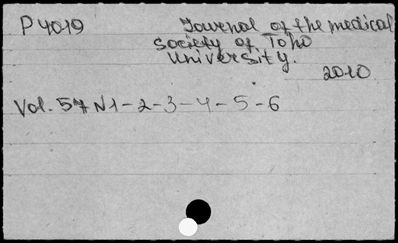 P4019 Journal of the medical
society of Toho
University.
2010
Vol. 57 N1-2-3-4-5-6